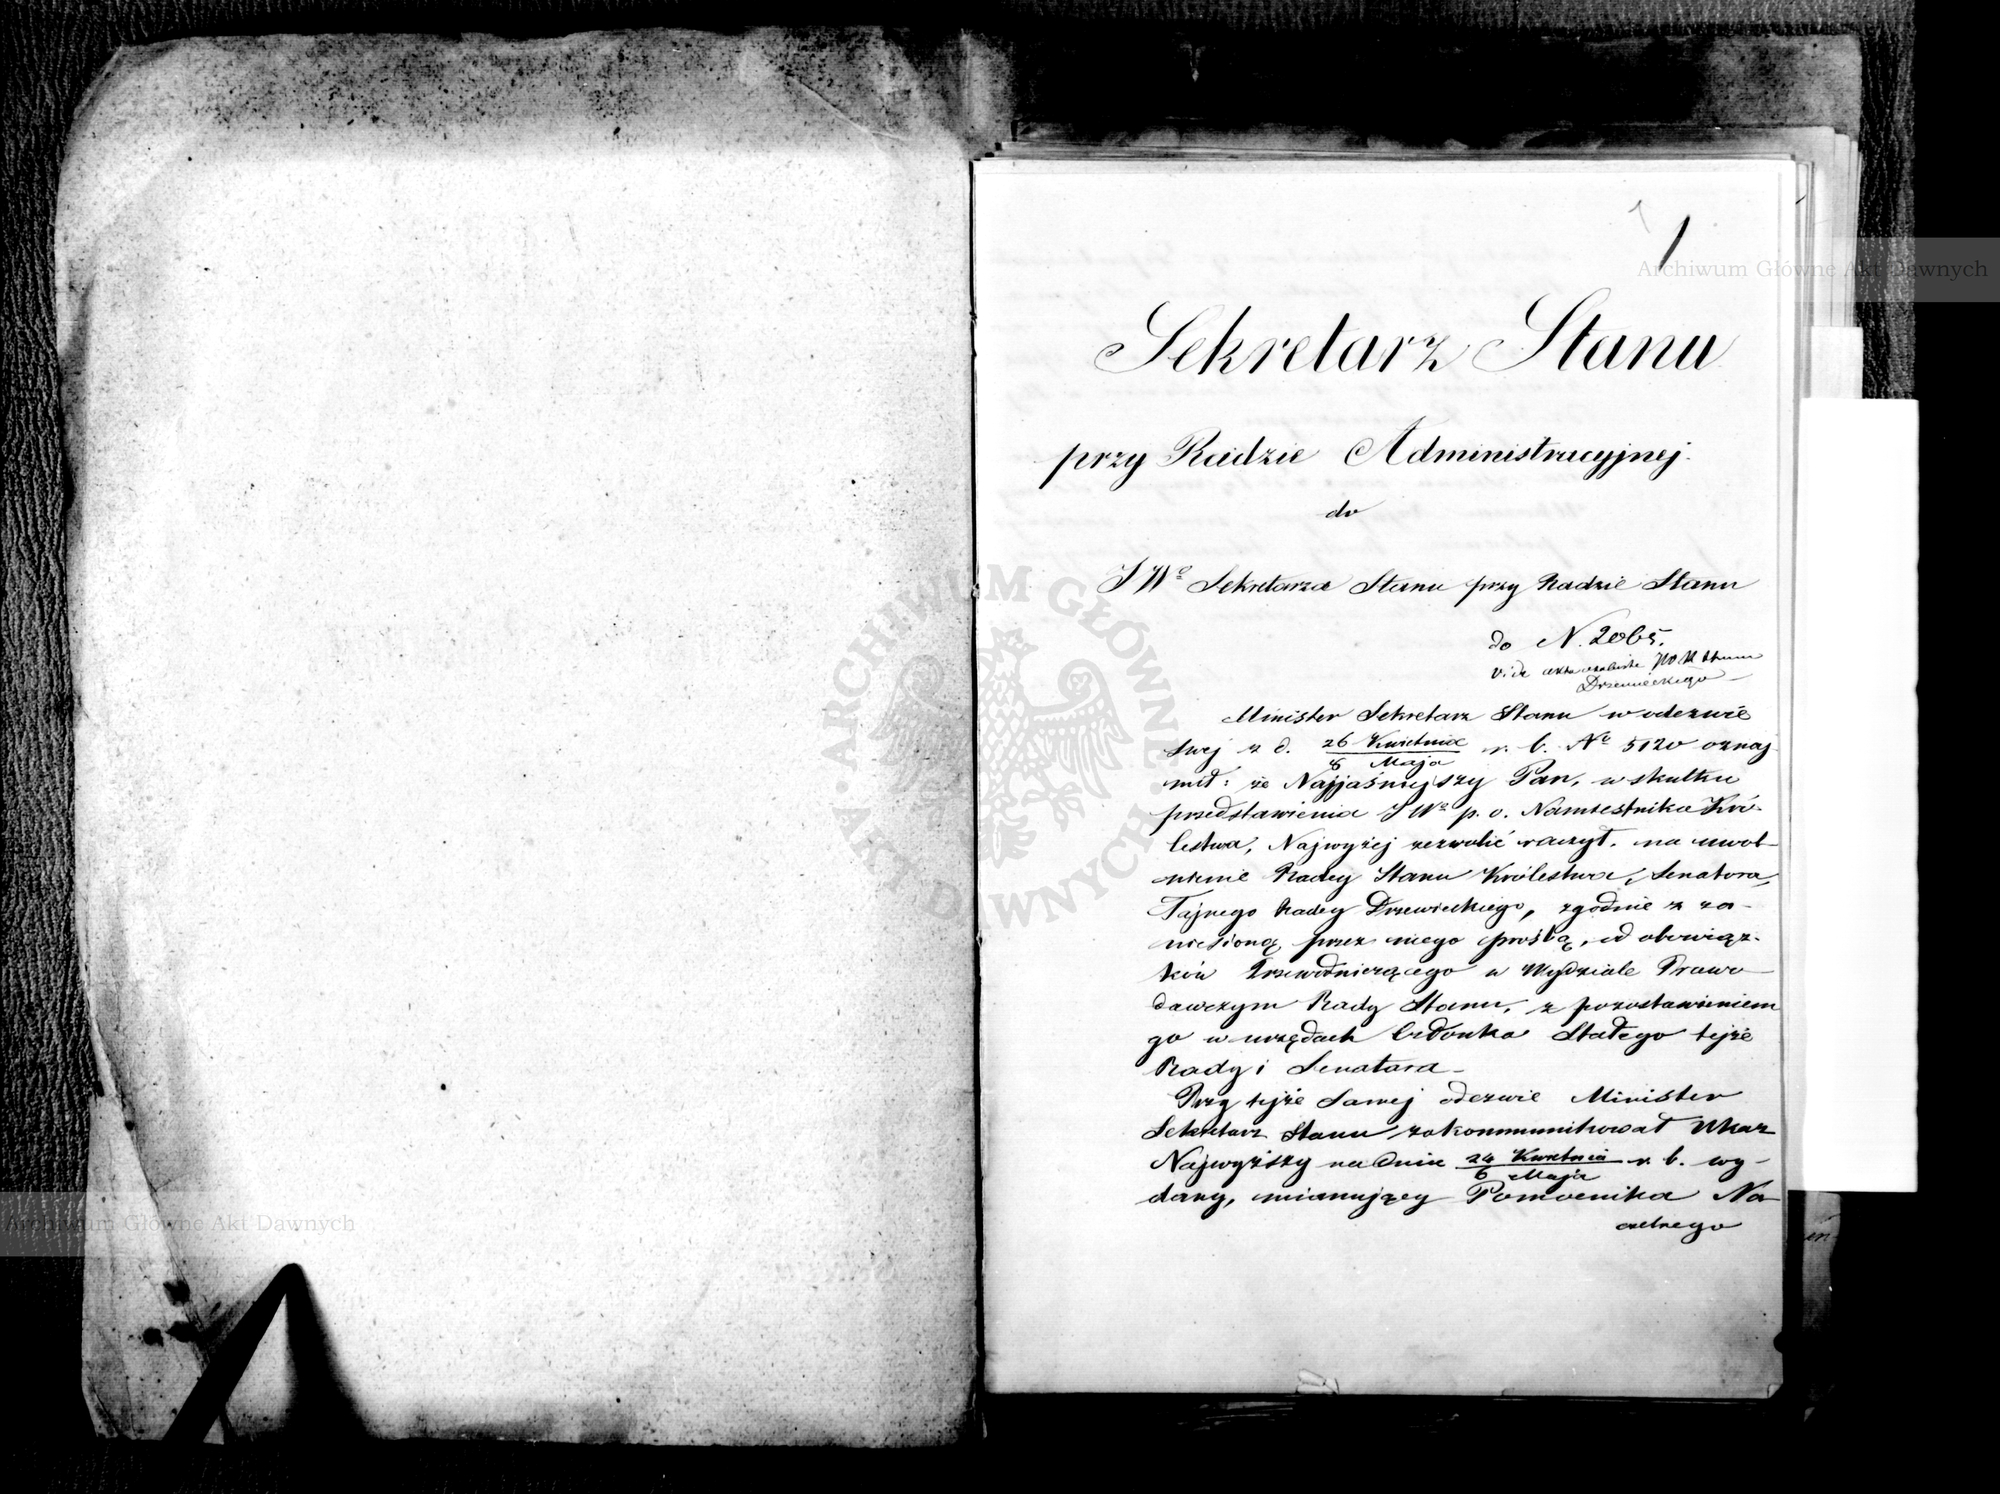 1
Sekretarz Stanu
przy Radzie Administracyjnej.
do
JWº Sekretarza Stanu przy Radzie Stanu
do N. 2065.
vide akta osobiste
Drzewieckiego
Minister Sekretarz Stanu w odezwie
swej z d. 26 Kwietnia/8 Maja r. b. Nº 5120 oznaj
mił: że Najjaśniejszy Pan, w skutku
przedstawienia JWº p. o. Namiestnika Kró-
lestwa, Najwyżej zezwolić raczył, na uwol-
nienie Radcy Stanu Królestwa, Senatora,
Tajnego Radcy Drzewieckiego, zgodnie z za-
niesioną przez niego prośbą, od obowiąz-
ków Przewodniczącego w Wydziale Prawo-
dawczym Rady Stanu, z pozostawieniem
go w urzędach Członka Stałego tejże
Rady i Senatora.
Przy tejże samej odezwie Minister
Sekretarz Stanu zakommunikował Ukaz
Najwyższy na dniu 24 Kwietnia/6 Maja r. b. wy-
dany, mianujący Pomocnika Na
czelnego
Archiwum Główne Akt Dawnych
ARCHIWUM GŁÓWNE AKT DAWNYCH
Archiwum Główne Akt Dawnych